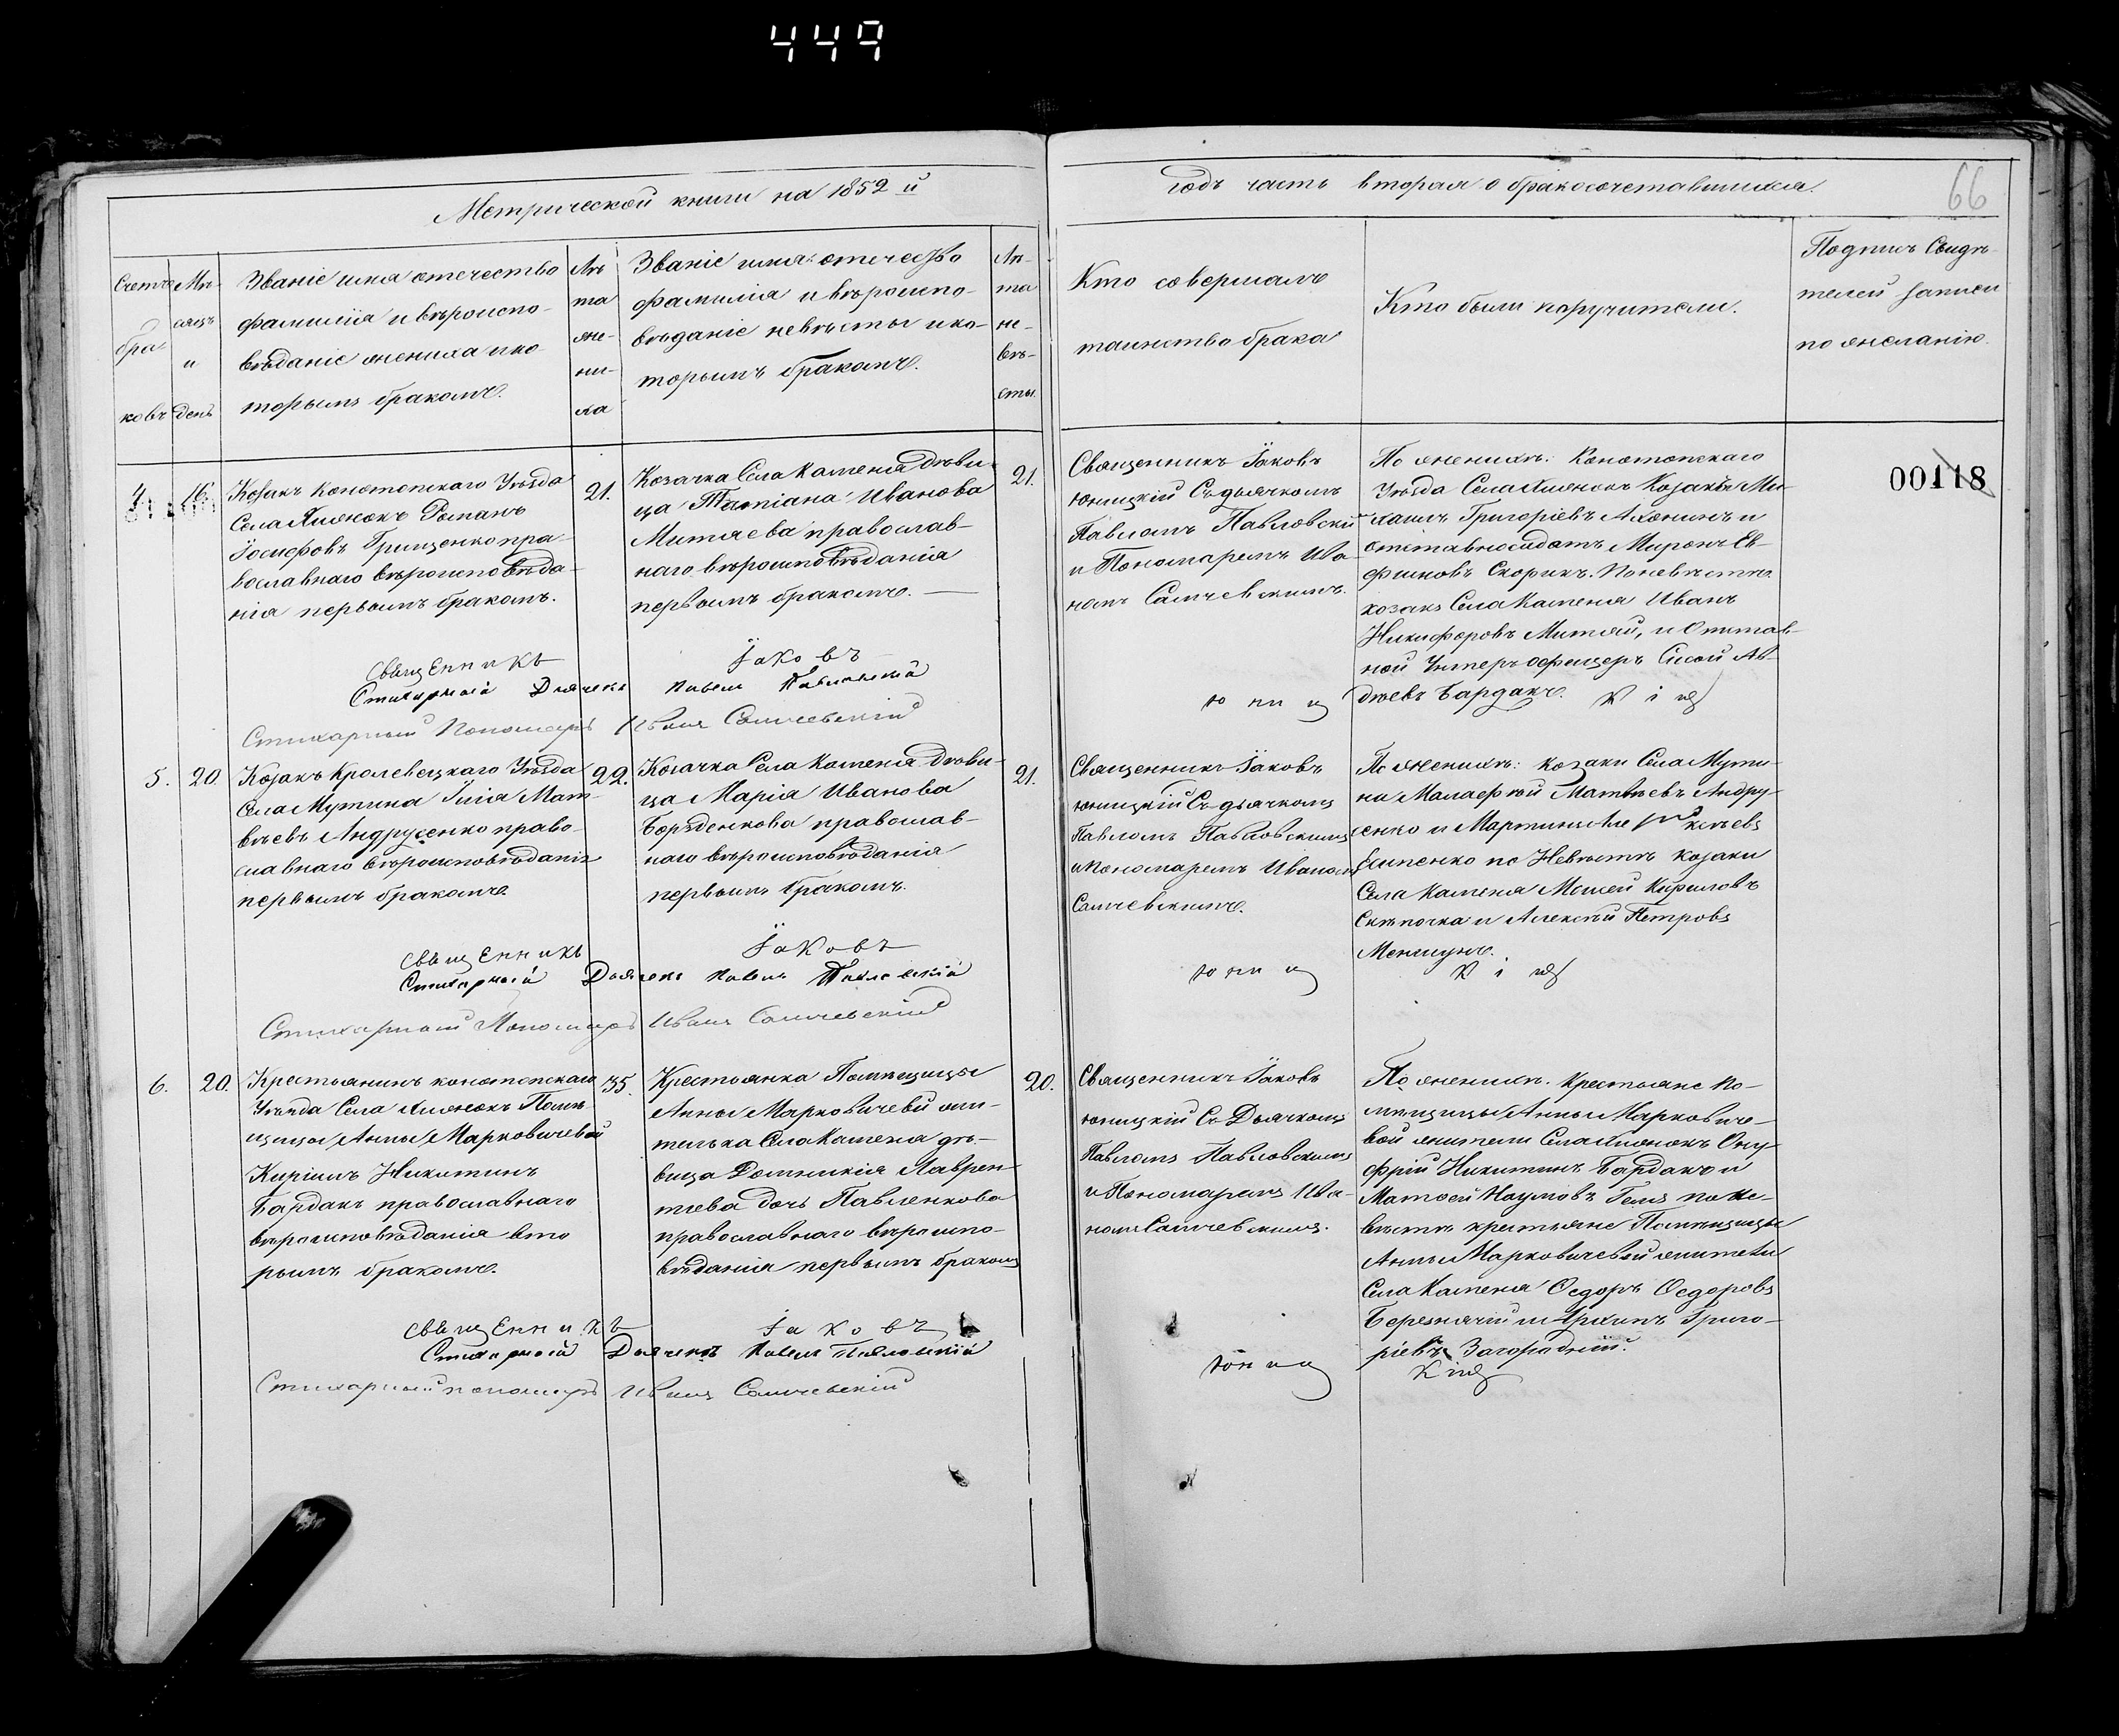 449
Метрической книги на 1852 й
годъ часть вторая о бракосочетавшихся.
66
Счетъ
бра
ковъ
Мѣ-
сяцъ
и
день
Званіе имя отечество
фамилія и вѣроиспо-
вѣданіе жениха и ко-
торымъ бракомъ.
Лѣ
та
же-
ни-
ха
Званіе имя отечество
фамилія и вѣроиспо-
вѣданіе невѣсты и ко-
торымъ бракомъ.
Лѣ-
та
не-
вѣ-
сты.
Кто совершалъ
таинство брака
Кто были поручители.
Подпись Свидѣ-
телей записи
по желанію.
4.
16.
Козакъ Конотопскаго Уѣзда
Села Хижокъ Романъ
Іосифовъ Грищенко пра-
вославнаго вѣроисповѣда-
нія первымъ бракомъ.
21.
Козачка Села Каменя дѣви-
ца Татіана Иванова
Митяева православ-
наго вѣроисповѣданія
первымъ бракомъ.
21.
Священникъ Іаковъ
Юницкій Съ дьячкомъ
Павломъ Павловскимъ
и Пономаремъ Ива-
номъ Самчевскимъ.
По женихѣ: Конотопскаго
Уѣзда Села Хижокъ Козакъ Ми-
хаилъ Григоріевъ Ахонинъ и
Миронъ Ев-
фимовъ Скорикъ. По невѣстѣ
козакъ Села Каменя Иванъ
Никифоровъ Митяй, и Отстав-
ной Унтеръ офицеръ Сисой Ав-
дѣевъ Бардакъ.
00118
Священникъ Іаковъ Юницкій
Стихарный Дьячекъ Павелъ Павловскій
Стихарный Пономарь Иванъ Самчевскій
5.
20.
Козакъ Кролевецкаго Уѣзда
Села Мутина Илія Мат-
вѣевъ Андрусенко право-
славнаго вѣроисповѣданія
первымъ бракомъ.
22.
Козачка Села Каменя дѣви-
ца Марія Иванова
Борзденкова православ-
наго вѣроисповѣданія
первымъ бракомъ.
21.
Священникъ Іаковъ
Юницкій Съ дьячкомъ
Павломъ Павловскимъ
и Пономаремъ Иваномъ
Самчевскимъ.
По женихѣ: козаки Села Мути-
на Малафѣй Матвѣевъ Андру-
сенко и Мартинъ Алексѣевъ
по Невѣстѣ козаки
Села Каменя Моисей Кириловъ
Скѣпочка и Алексѣй Петровъ
Меншунъ.
Священникъ Іаковъ Юницкій
Стихарный Дьячекъ Павелъ Павловскій
Стихарный Пономарь Иванъ Самчевскій
6.
20.
Крестьянинъ Конотопскаго
Уѣзда Села Хижокъ Помѣ-
щицы Анны Марковичевой
Кирилъ Никитинъ
Бардакъ православнаго
вѣроисповѣданія вто
рымъ бракомъ.
35.
Крестьянка Помѣщицы
Анны Марковичевй жи-
телька Села Каменя дѣ-
вица Домникія Лаврен-
тіева дочь Павленкова
православнаго вѣроиспо-
вѣданія первымъ бракомъ
20.
Священникъ Іаковъ
Юницкій Съ Дьячкомъ
Павломъ Павловскимъ
и Пономаремъ Ива-
номъ Самчевскимъ.
По женихѣ: крестьяне По-
мѣщицы Анны Марковиче-
вой жители Села Хижокъ Ону-
фрій Никитинъ Бардакъ и
Матѳей Наумовъ Гемъ по Не-
вѣстѣ крестьяне Помѣщицы
Анны Марковичевой жители
Села Каменя Ѳедоръ Ѳедоровъ
Бережній и Архипъ Григо-
ріевъ Загородній.
Священникъ Іаковъ Юницкій
Стихарный Дьячекъ Павелъ Павловскій
Стихарный пономарь Иванъ Самчевскій